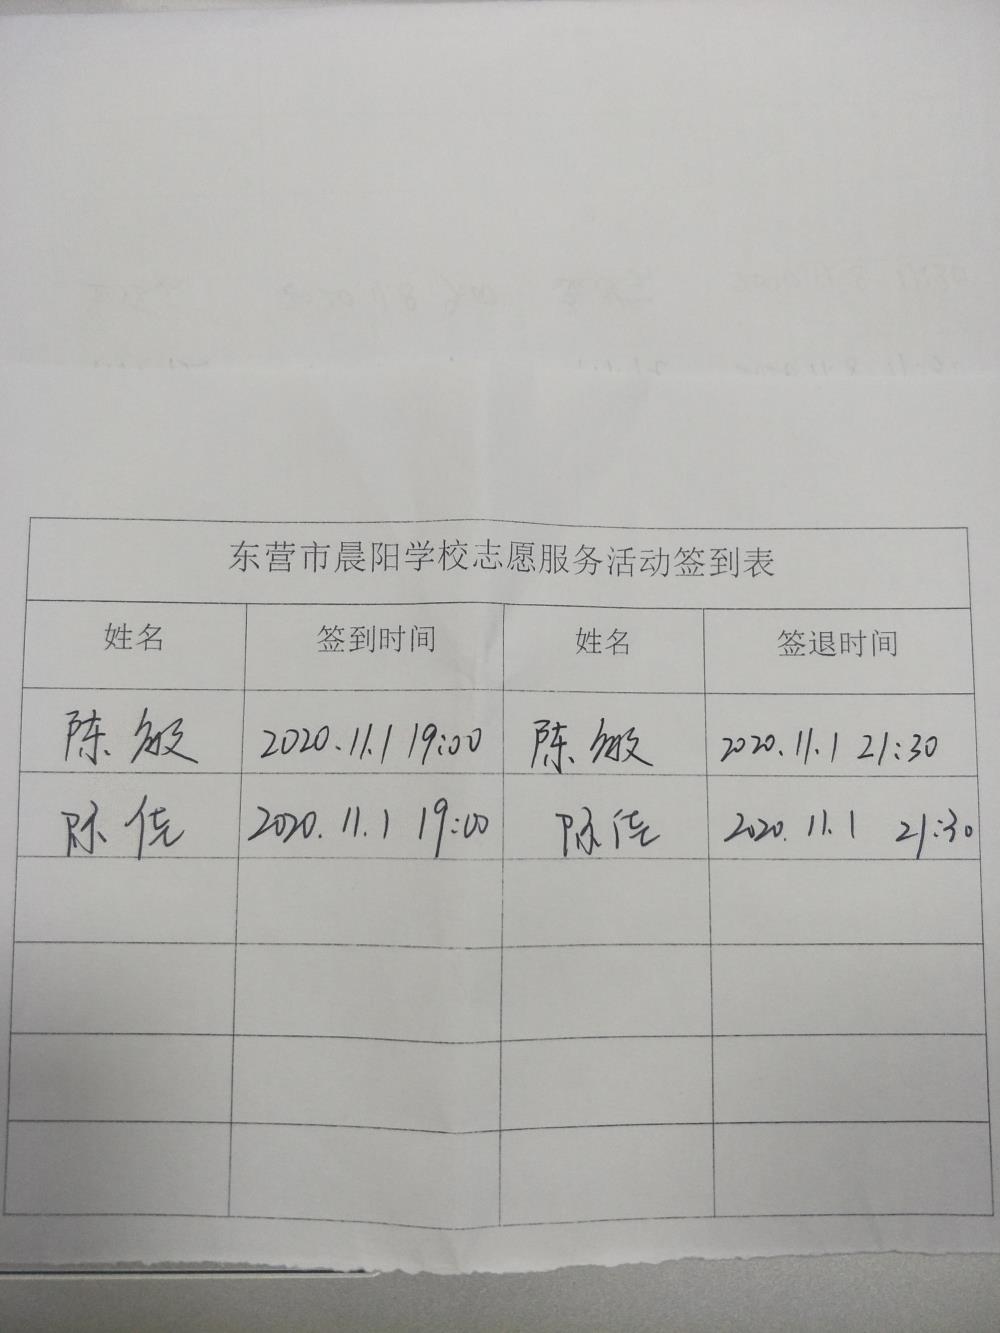 东营市晨阳学校志愿服务活动签到表
姓名 签到时间 姓名 签退时间
陈敏 2020.11.1 19:00 陈敏 2020.11.1 21:30
陈 2020.11.1 19:00 陈 2020.11.1 21:30